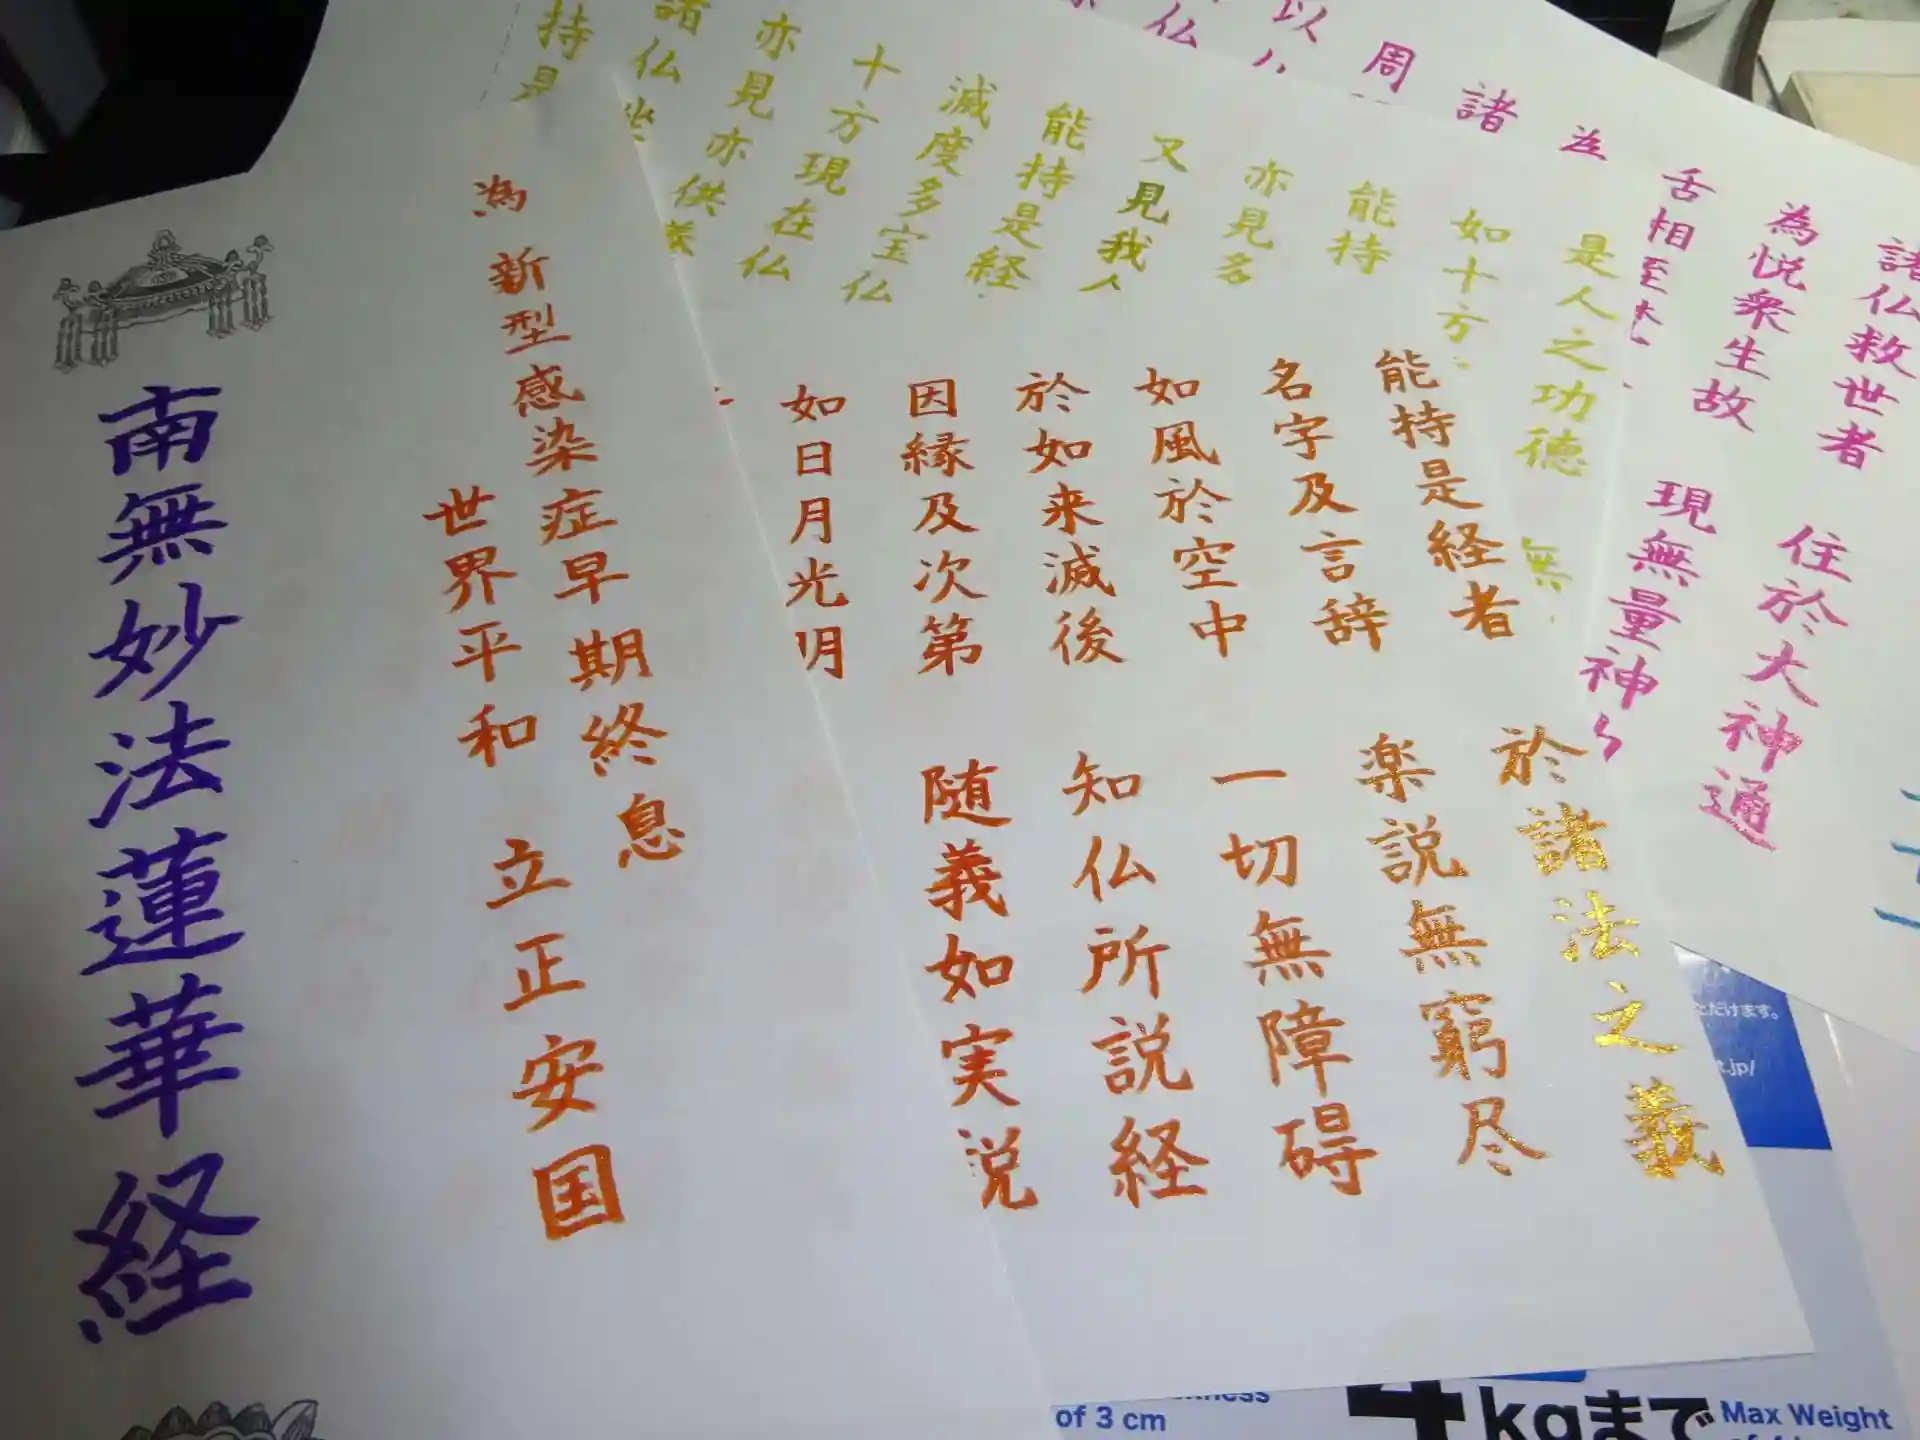 諸仏救世者 住於大神通
為悦衆生故 現無量神
舌相至梵
諸
周
以
仏
是人之功徳 無
如十方
能持
亦見多
又見我
能持是経
滅度多宝仏
十方現在仏
亦見亦供養
諸仏
持是
能持是経者 於諸法之義
名字及言辞 楽説無窮尽
如風於空中 一切無障碍
於如来滅後 知仏所説経
因縁及次第 随義如実説
如日月光明
為 新型感染症早期終息
世界平和 立正安国
南無妙法蓮華経
ただけます。
.jp/
of 3 cm
4kgまで
Max Weight